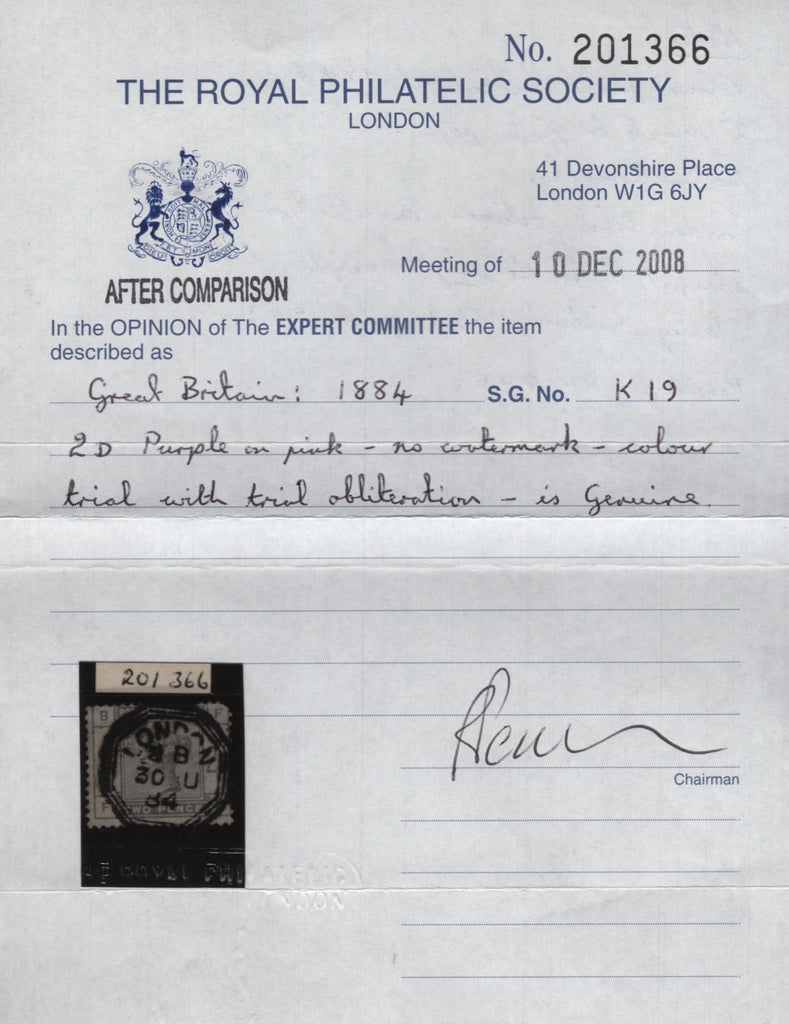 No. 201366
THE ROYAL PHILATELIC SOCIETY
LONDON
41 Devonshire Place
London W1G 6JY
DIEU ET MON DROIT
Meeting of 10 DEC 2008
AFTER COMPARISON
In the OPINION of The EXPERT COMMITTEE the item
described as
Great Britain: 1884 S.G. No. K19
2D Purple on pink - no watermark - colour
trial with trial obliteration - is Genuine.
201 366
B F
LONDON
8
30 U
84
F TWO PENCE
Chairman